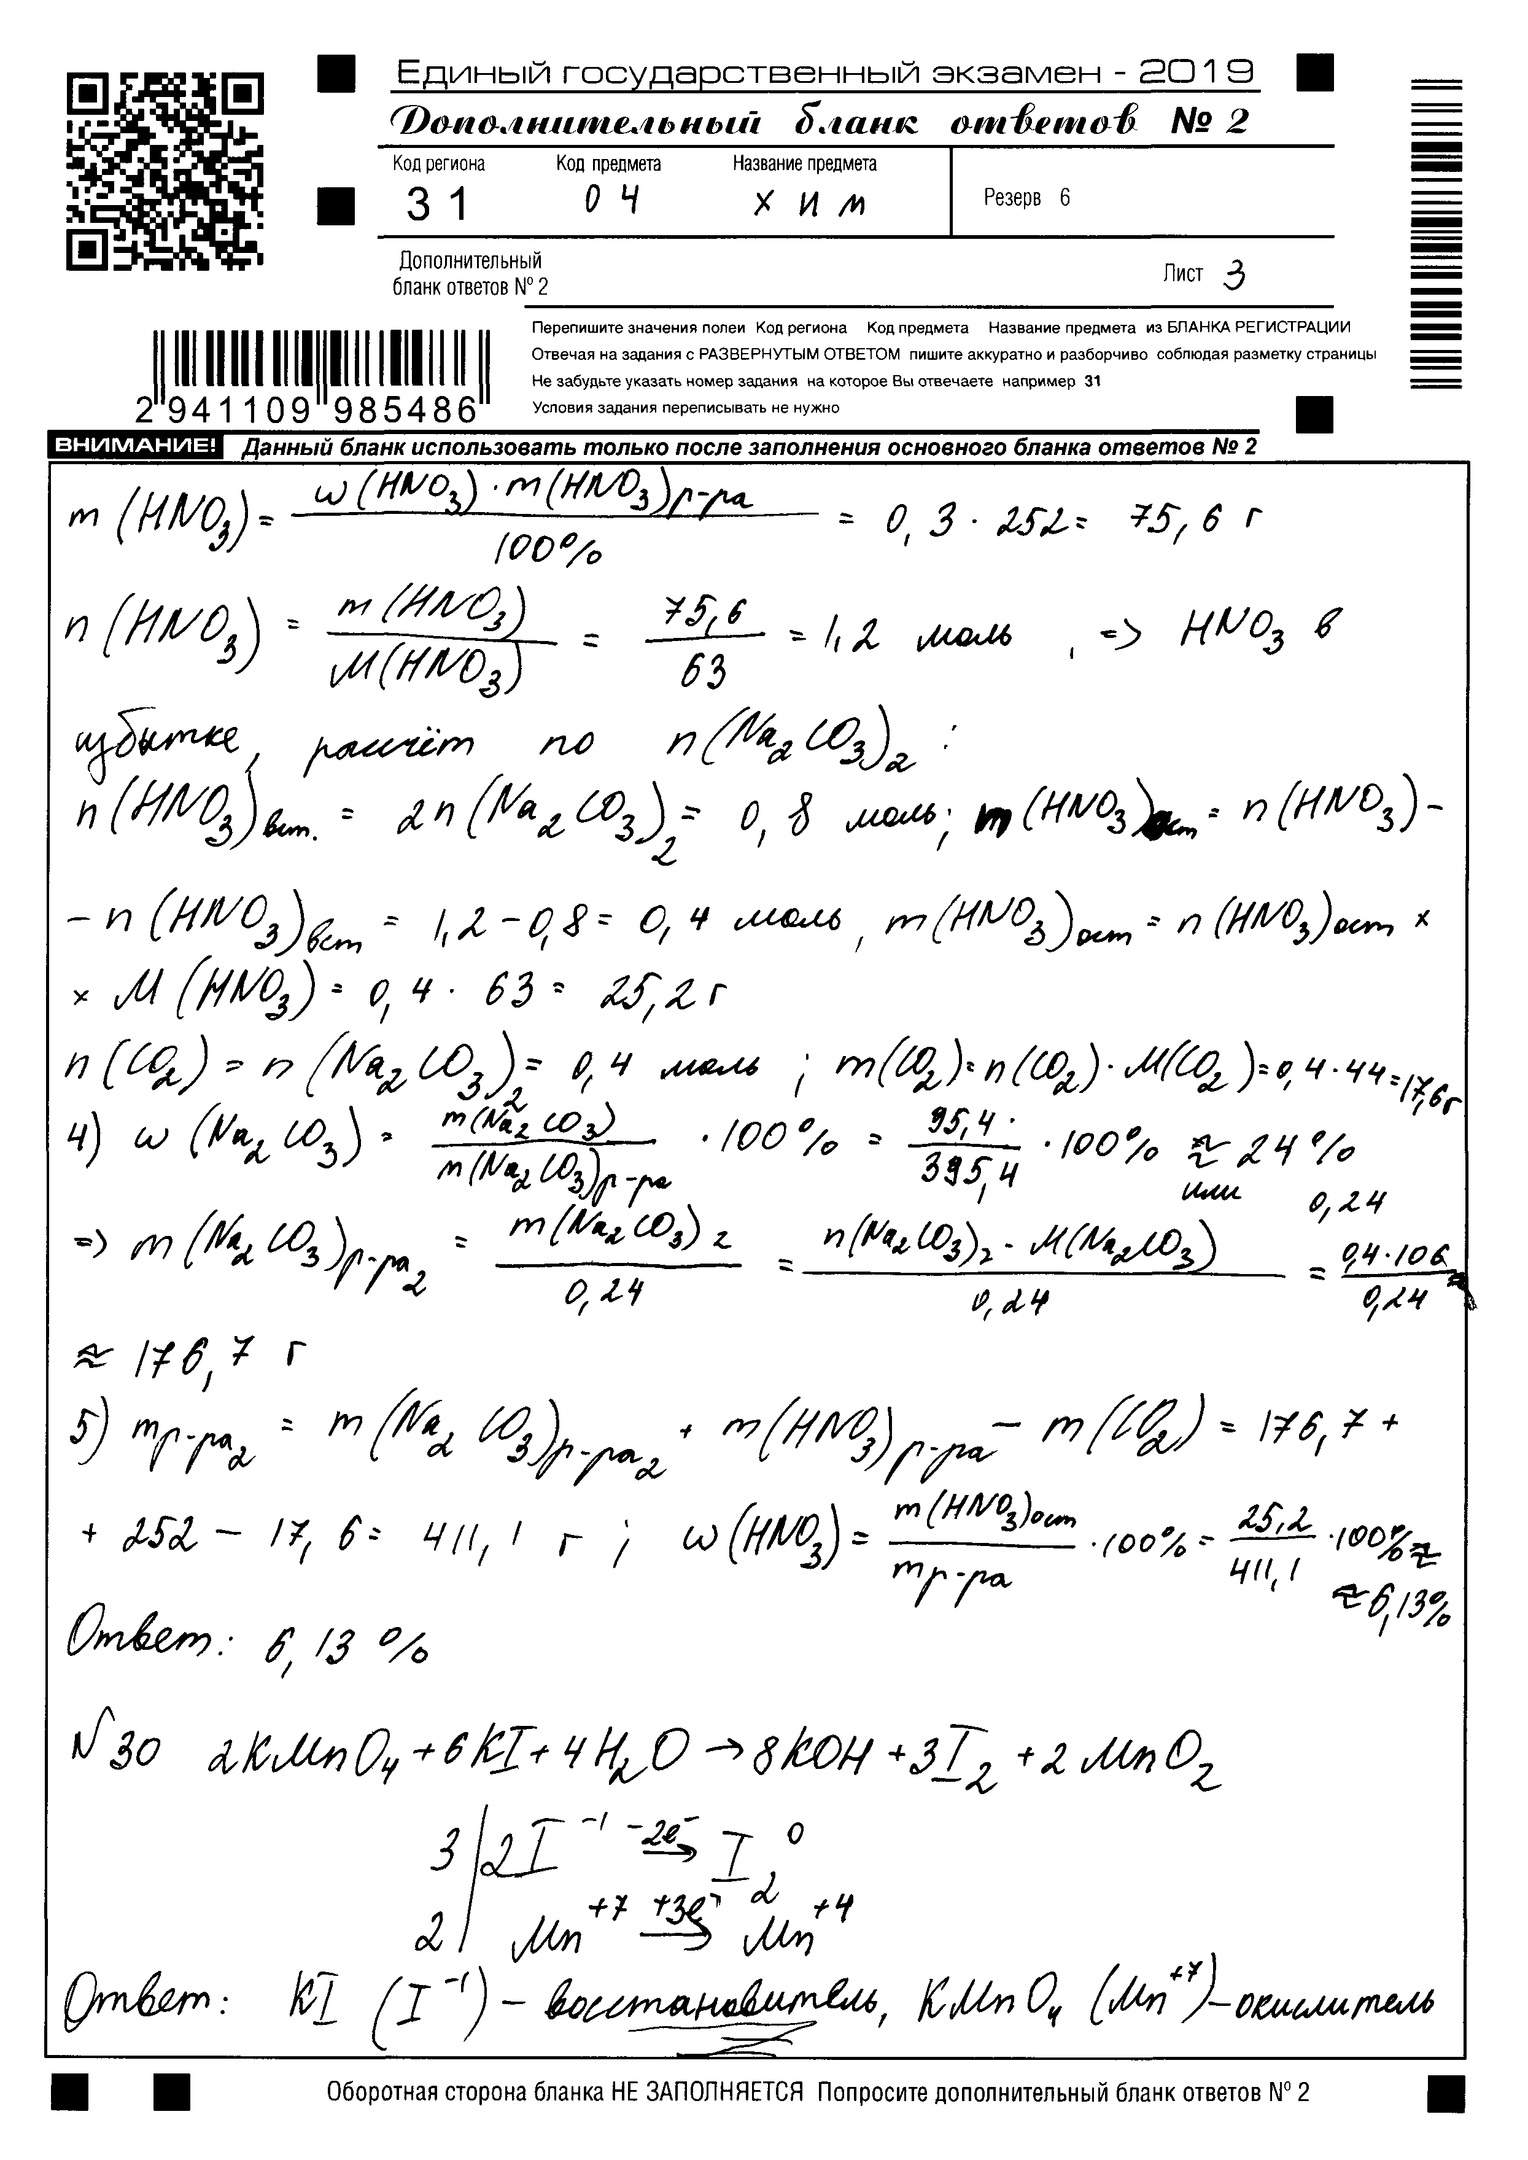 Единый государственный экзамен - 2019
Дополнительный бланк ответов № 2
Код региона Код предмета Название предмета
31 04 хим Резерв 6
Дополнительный
бланк ответов № 2
Лист 3
Перепишите значения полей Код региона Код предмета Название предмета из БЛАНКА РЕГИСТРАЦИИ
Отвечая на задания с РАЗВЕРНУТЫМ ОТВЕТОМ пишите аккуратно и разборчиво соблюдая разметку страницы
Не забудьте указать номер задания на которое Вы отвечаете например 31
Условия задания переписывать не нужно
2 941109 985486
ВНИМАНИЕ! Данный бланк использовать только после заполнения основного бланка ответов № 2
m (HNO₃) = ω(HNO₃)·m(HNO₃)р-ра / 100% = 0,3 · 252 = 75,6 г
n (HNO₃) = m(HNO₃) / M(HNO₃) = 75,6 / 63 = 1,2 моль, => HNO₃ в
избытке, расчёт по n(Na₂CO₃)₂ :
n(HNO₃)вст. = 2n(Na₂CO₃)₂ = 0,8 моль; m(HNO₃)ост = n(HNO₃) -
- n(HNO₃)вст = 1,2 - 0,8 = 0,4 моль, m(HNO₃)ост = n(HNO₃)ост ×
× M(HNO₃) = 0,4 · 63 = 25,2 г
n(CO₂) = n(Na₂CO₃)₂ = 0,4 моль; m(CO₂) = n(CO₂)·M(CO₂) = 0,4·44 = 17,6 г
4) ω(Na₂CO₃) = m(Na₂CO₃) / m(Na₂CO₃)р-ра · 100% = 95,4 · / 395,4 · 100% ≈ 24%
или 0,24
=> m(Na₂CO₃)р-ра₂ = m(Na₂CO₃)₂ / 0,24 = n(Na₂CO₃)₂ · M(Na₂CO₃) / 0,24 = 0,4·106 / 0,24 ≈
≈ 176,7 г
5) mр-ра₂ = m(Na₂CO₃)р-ра₂ + m(HNO₃)р-ра - m(CO₂) = 176,7 +
+ 252 - 17,6 = 411,1 г ; ω(HNO₃) = m(HNO₃)ост / mр-ра · 100% = 25,2 / 411,1 · 100% ≈
≈ 6,13%
Ответ: 6,13 %
№30 2KMnO₄ + 6KI + 4H₂O → 8KOH + 3I₂ + 2MnO₂
3 | 2I⁻¹ -2e⁻ → I₂⁰
2 | Mn⁺⁷ +3e⁻ → Mn⁺⁴
Ответ: KI (I⁻¹) - восстановитель, KMnO₄ (Mn⁺⁷) - окислитель
Оборотная сторона бланка НЕ ЗАПОЛНЯЕТСЯ Попросите дополнительный бланк ответов № 2